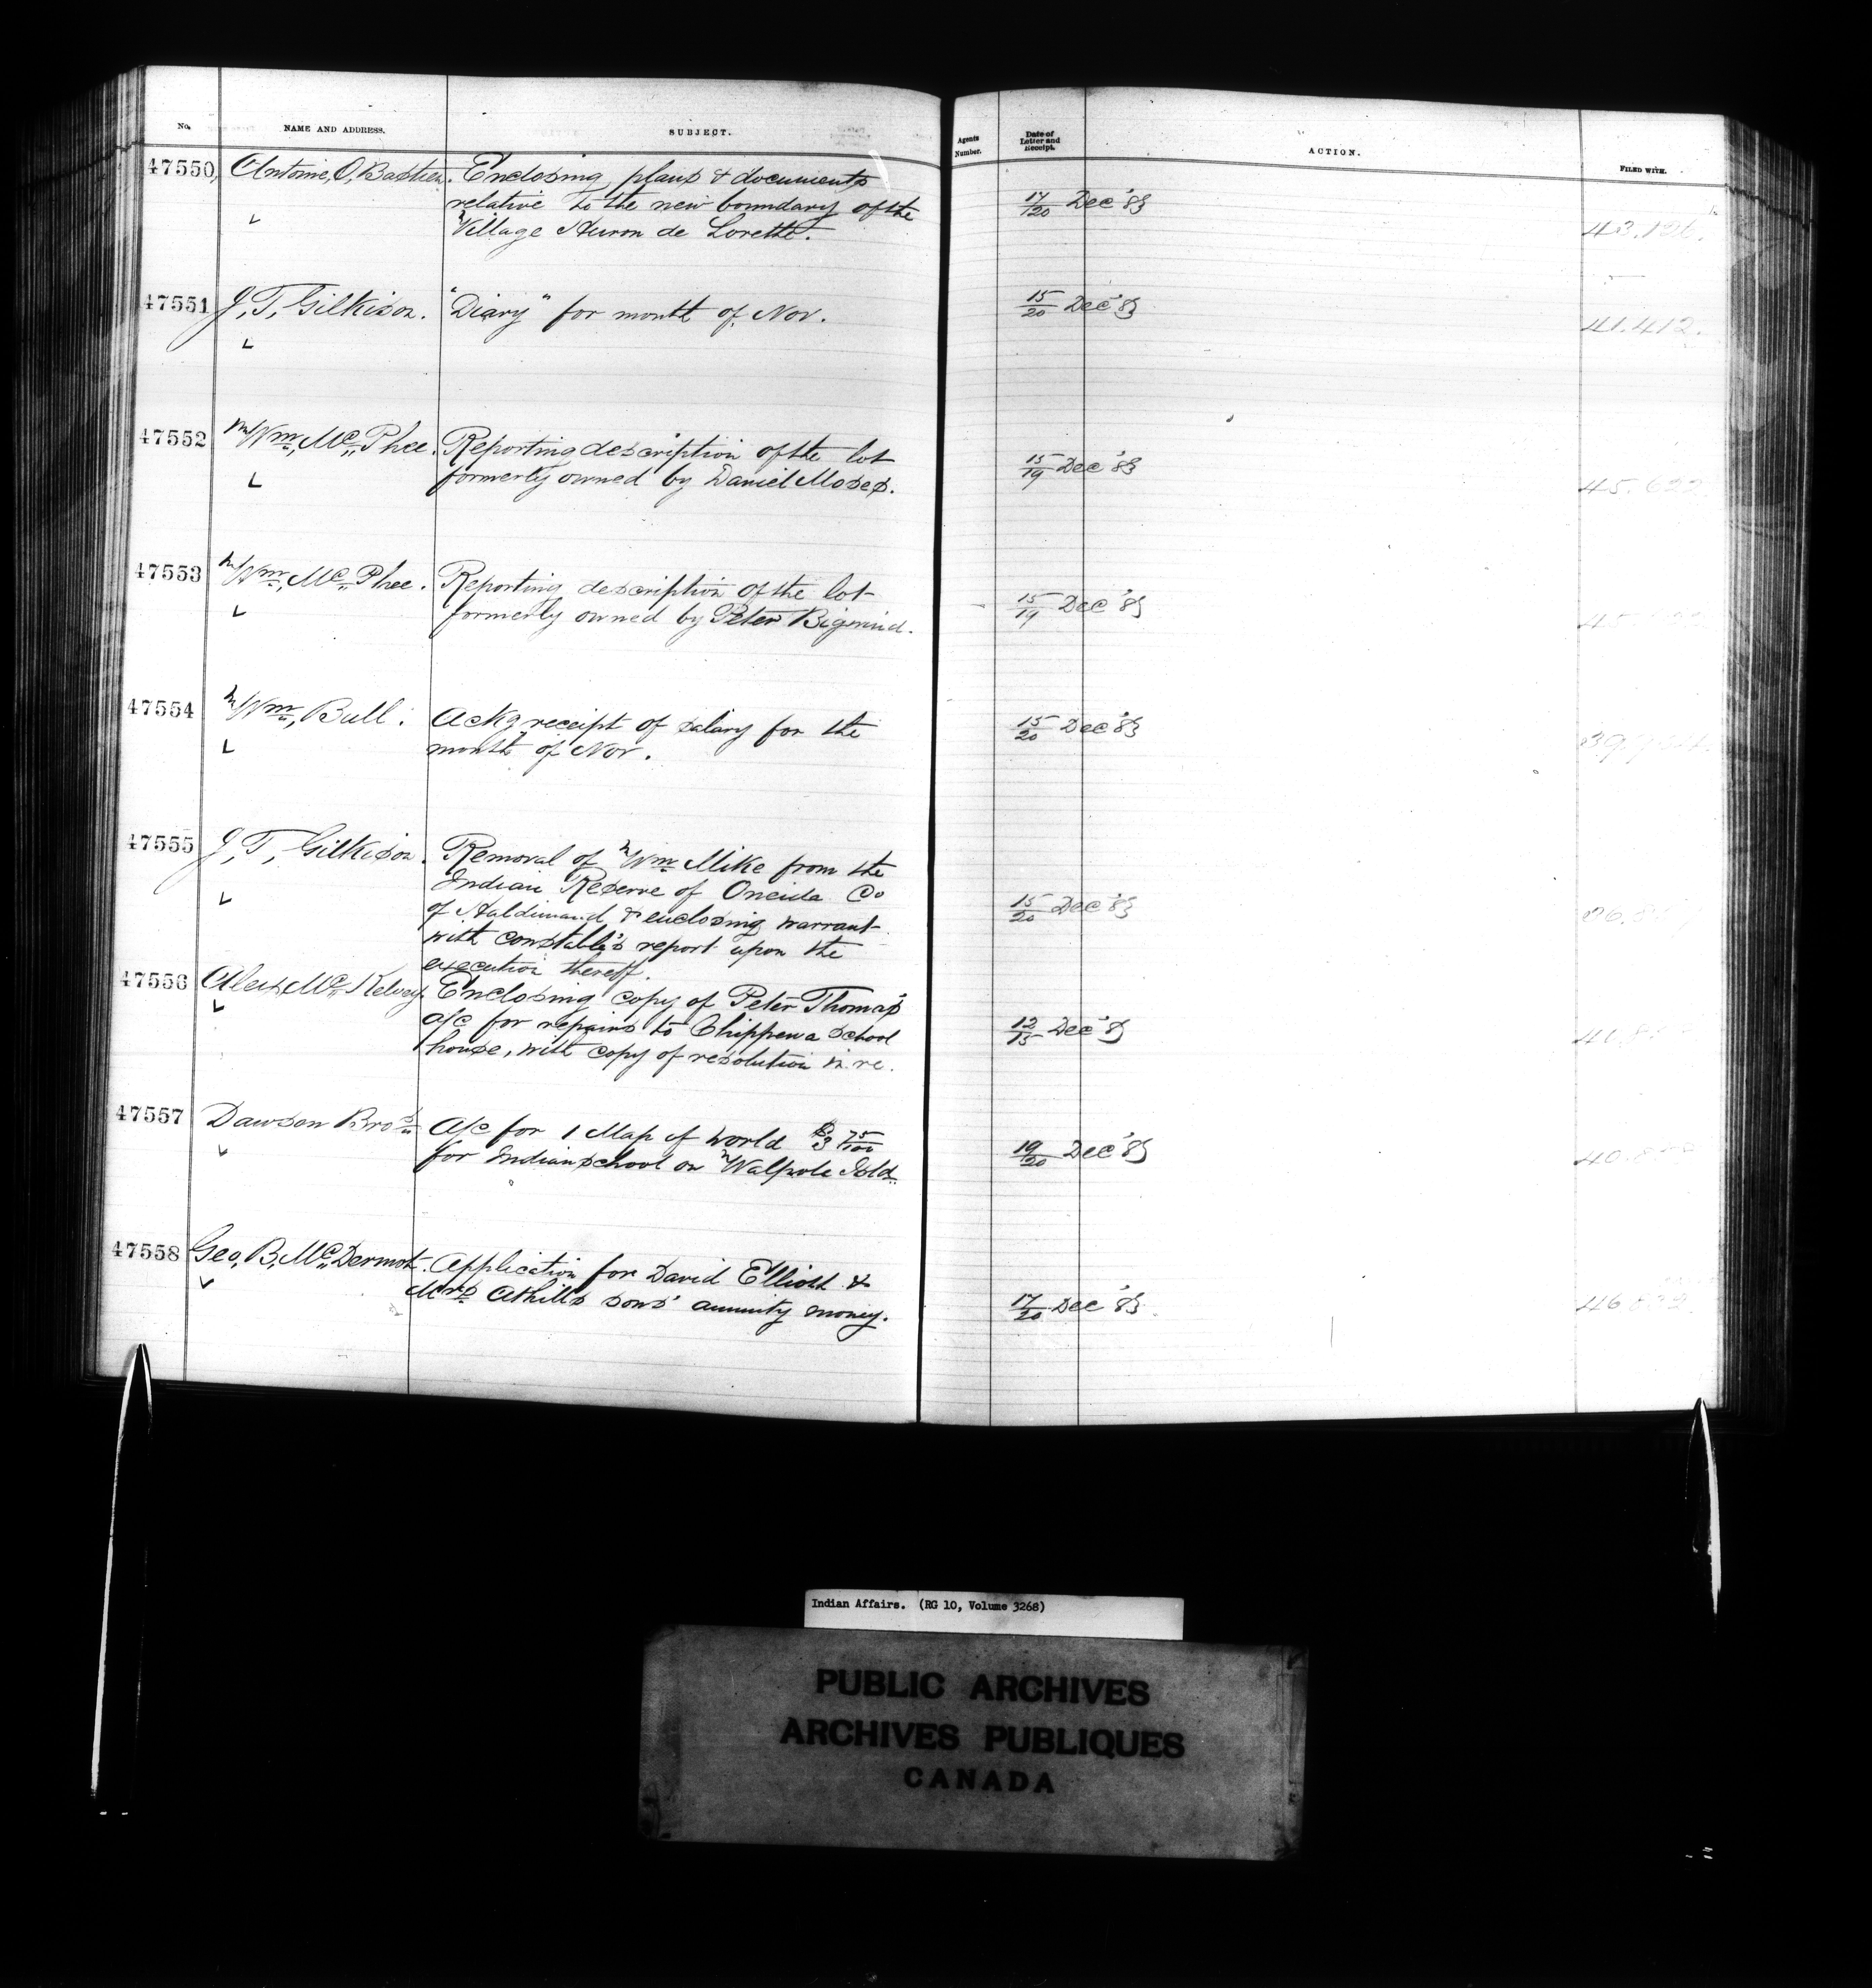 No. NAME AND ADDRESS. SUBJECT. Agents Number. Date of Letter and Receipt. ACTION. FILED WITH.
47550 Antoine, O, Bastien. Enclosing plans & documents
relative to the new boundary of the 17/20 Dec '83
Village Huron de Lorette. 43.126.
47551 J, T, Gilkison. "Diary" for month of Nov. 15/20 Dec '83
41.412.
47552 Wm, Mc Phee. Reporting description of the lot
formerly owned by Daniel Moses. 15/19 Dec '83
45.622
47553 Wm, Mc Phee. Reporting description of the lot
formerly owned by Peter Bigwind. 15/19 Dec '83
47554 Wm, Bull. Ackg receipt of salary for the
month of Nov. 15/20 Dec '83
47555 J, T, Gilkison. Removal of Wm Mike from the
Indian Reserve of Oneida Co
of Haldimand & enclosing warrant 15/20 Dec '83
with constable's report upon the
execution thereof.
47556 Alex, Mc Kelvey. Enclosing copy of Peter Thomas
a/c for repairs to Chippewa School
house, with copy of resolution in re. 12/15 Dec '83
47557 Dawson Bros A/c for 1 Map of World $3 75/100
for Indian school on Walpole Isld. 19/20 Dec '83
47558 Geo, B, Mc Dermot. Application for David Elliott &
Mrs Athill's sons' annuity money. 17/20 Dec '83
Indian Affairs. (RG 10, Volume 3268)
PUBLIC ARCHIVES
ARCHIVES PUBLIQUES
CANADA